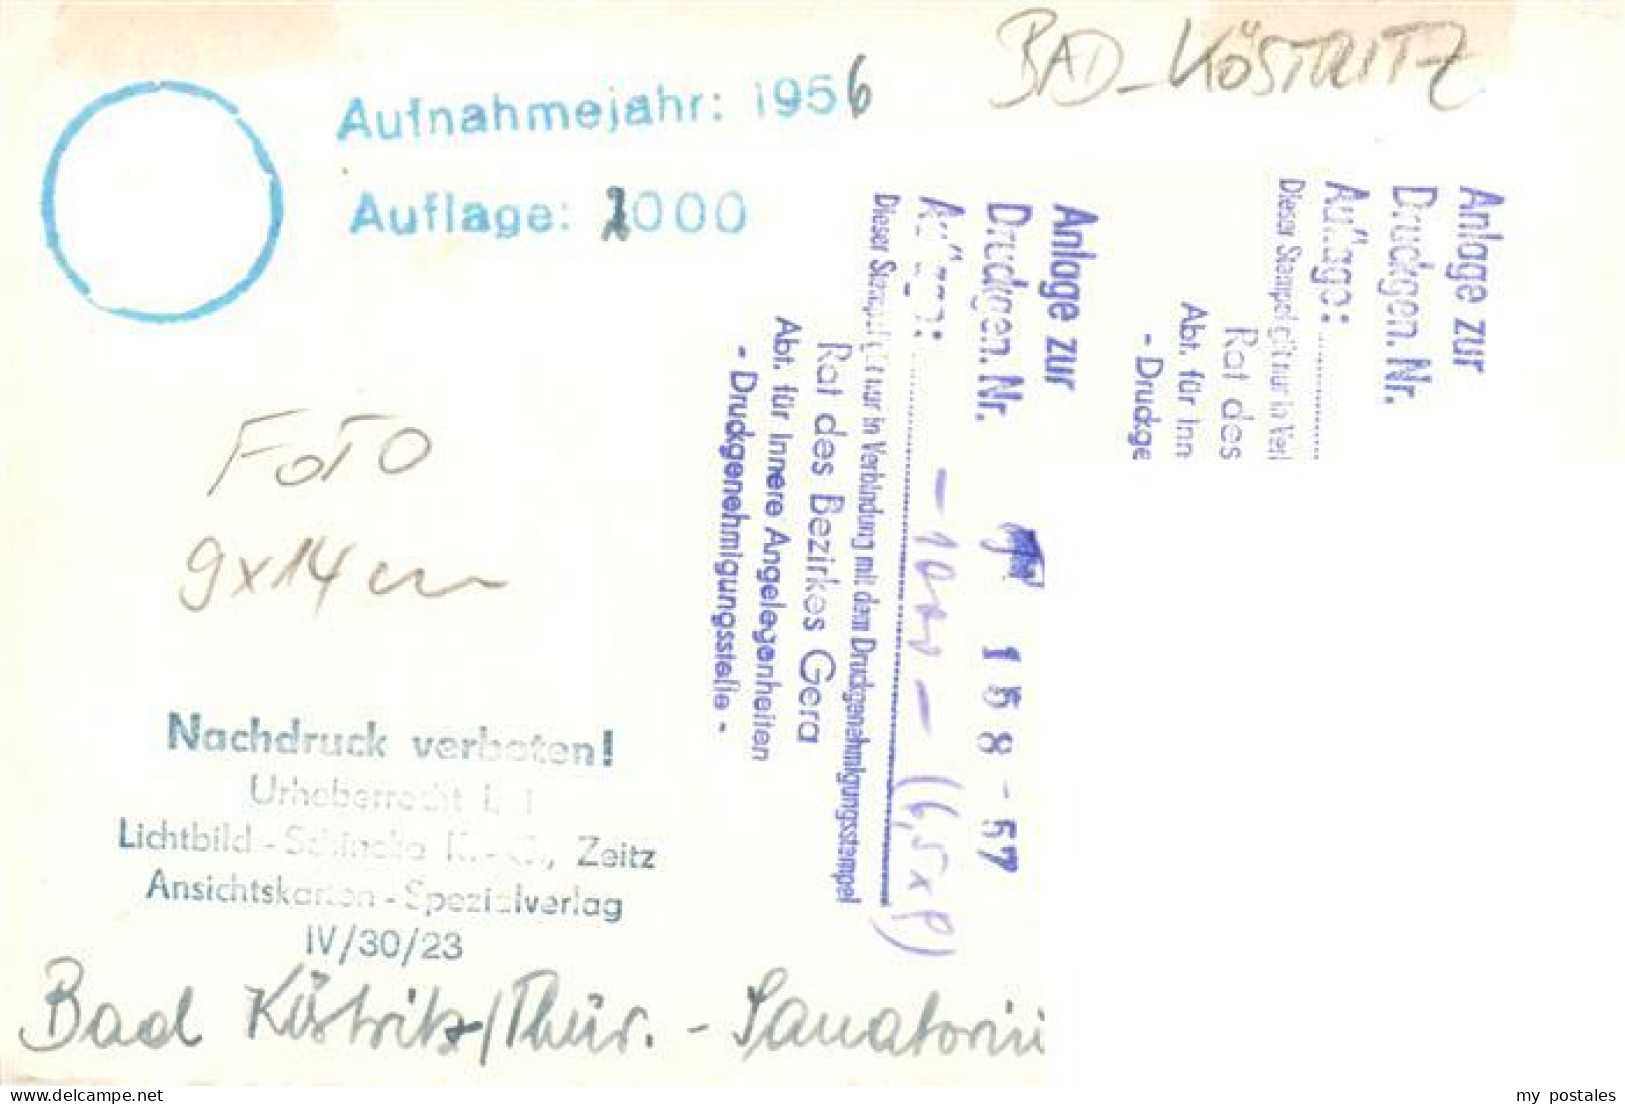 BAD-KÖSTRITZ
Aufnahmejahr: 1956
Auflage: 000
FOTO
9x14 cm
Nachdruck verboten!
Urheberrecht
Lichtbild - K.-G., Zeitz
Ansichtskarten - Spezialverlag
IV/30/23
Bad Köstritz/Thür. - Sanatoriu
Anlage zur
Druckgen. Nr. 1 5 8 - 57
Auflage: - 1000 - (6,5x9)
Dieser Stempel gilt nur in Verbindung mit dem Druckgenehmigungsstempel
Rat des Bezirkes Gera
Abt. für Innere Angelegenheiten
- Druckgenehmigungsstelle -
Anlage zur
Druckgen. Nr.
Auflage:
Dieser Stempel gilt nur in Ver
Rat des
Abt. für Inn
- Druckge
www.delcampe.net
my postales